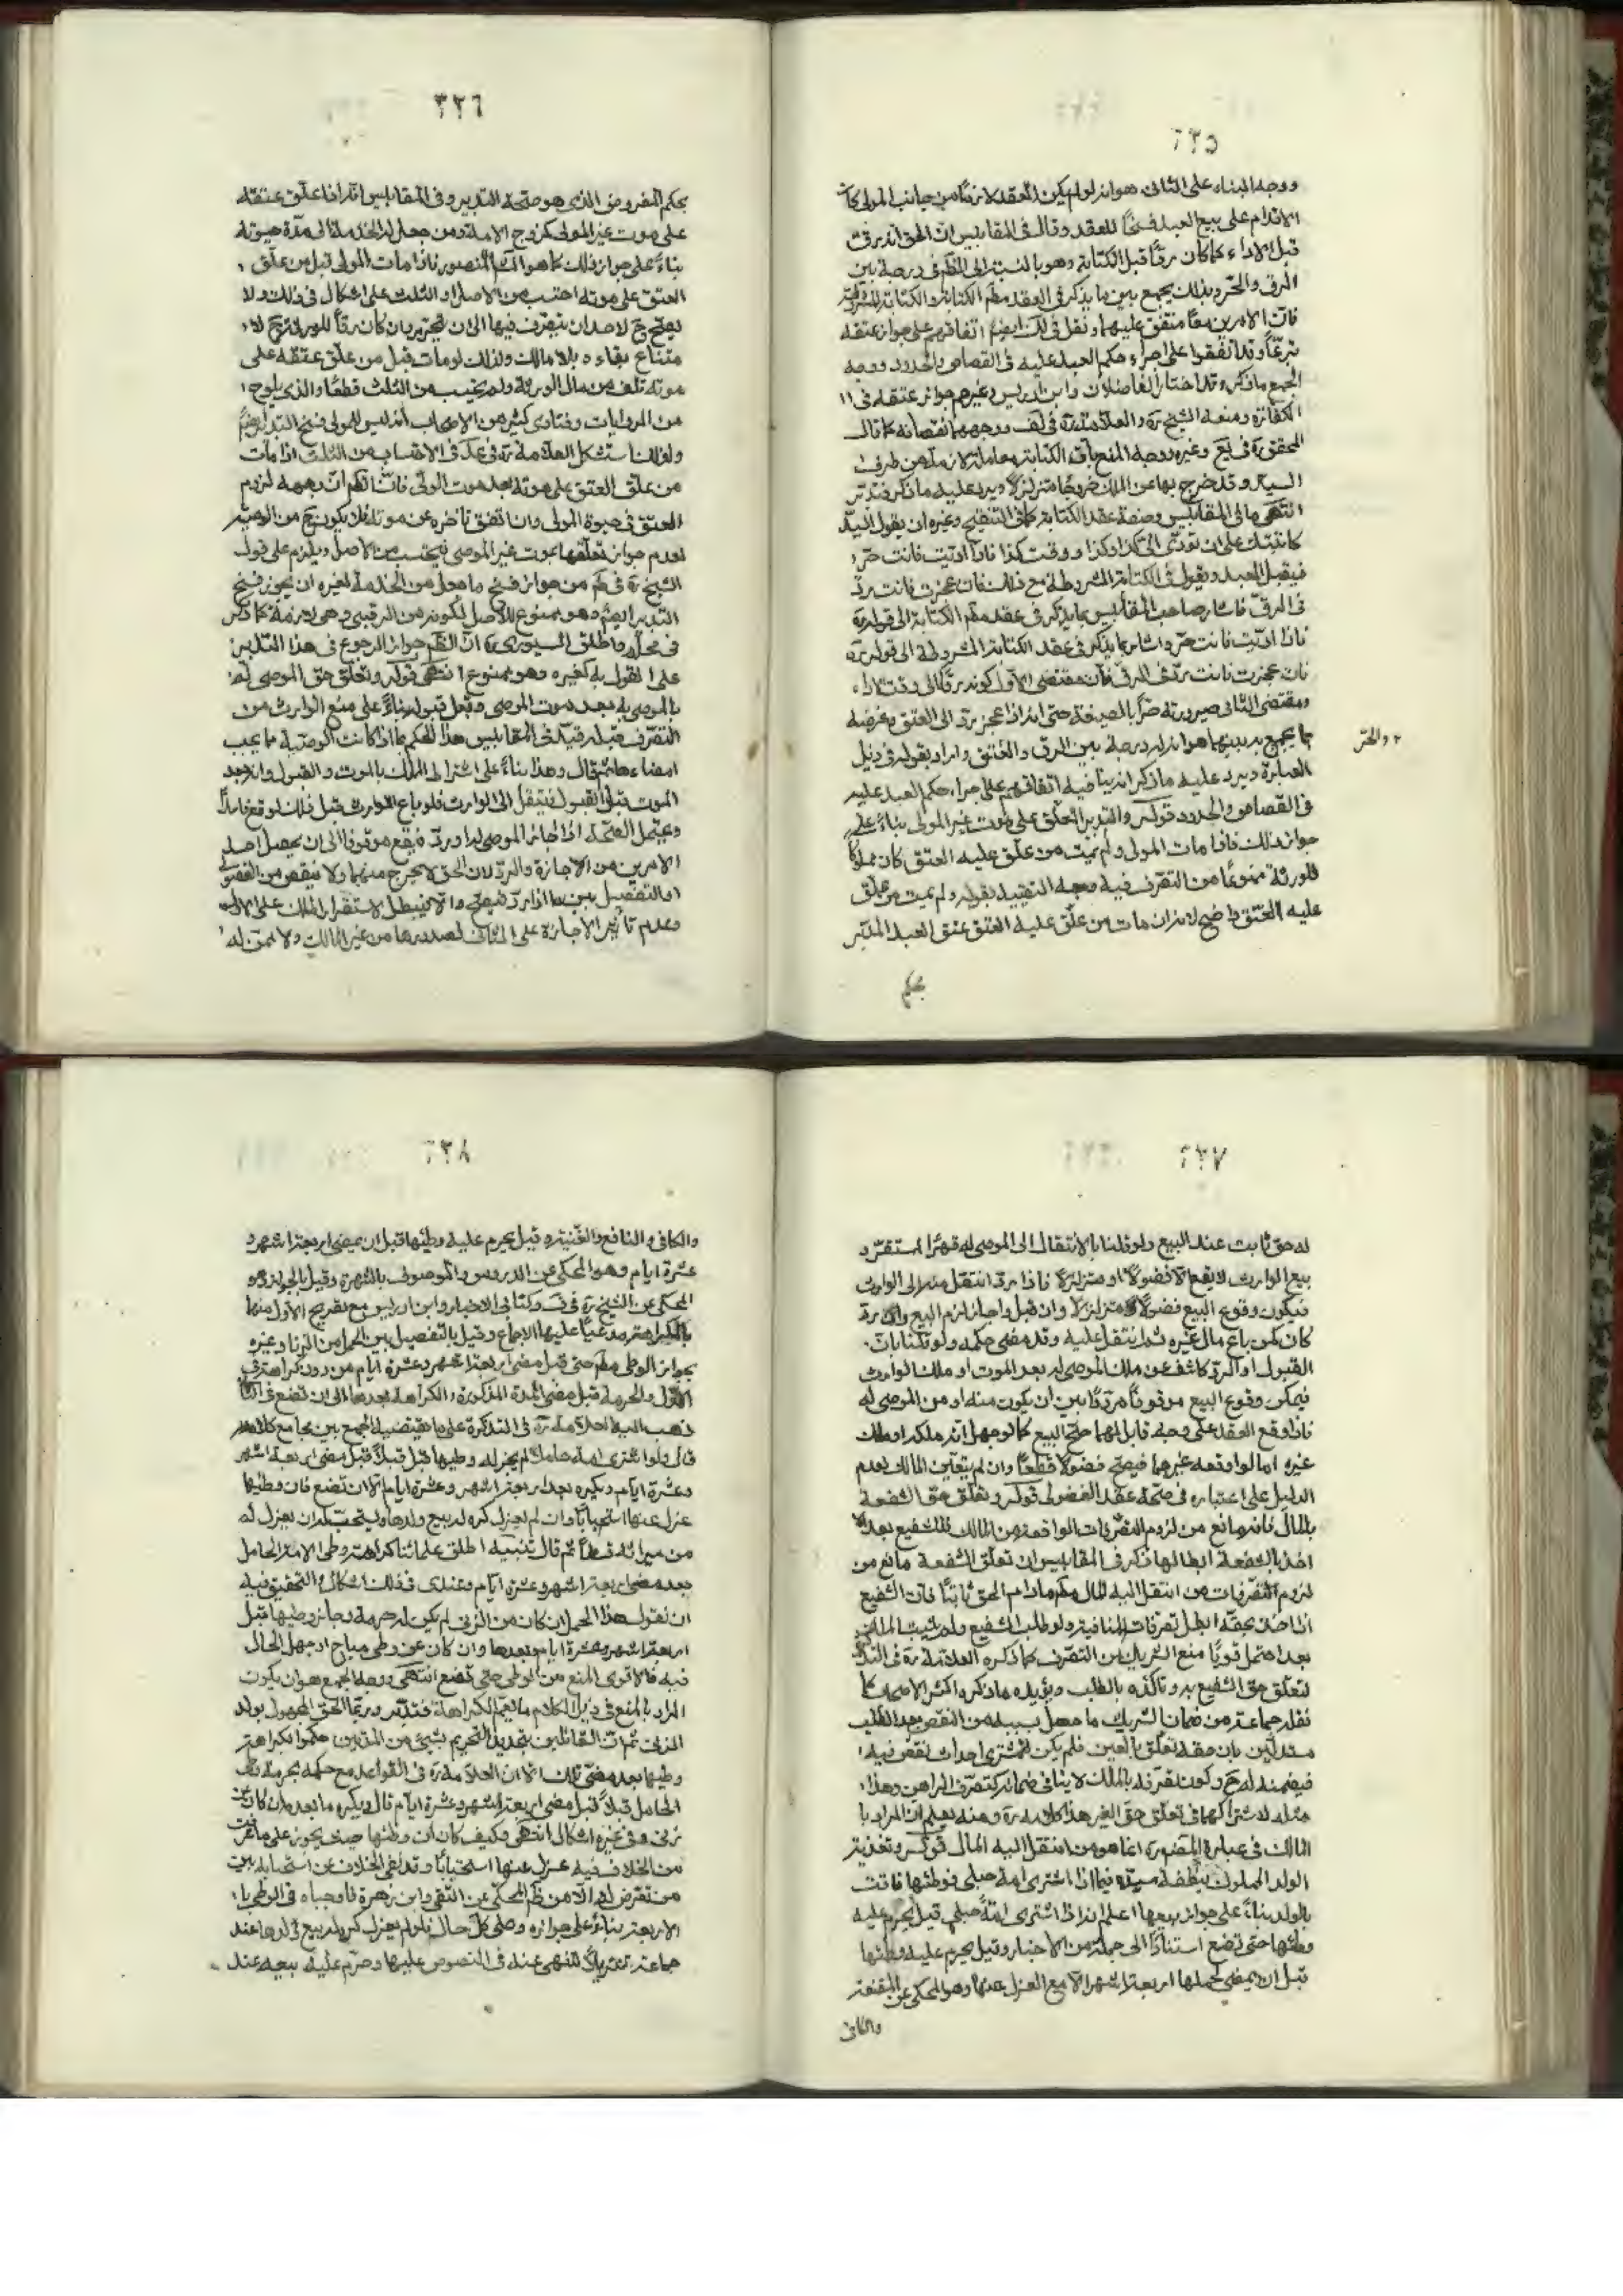 ٦٣٥
ووجه البناء على الثانى هو انه لو لم يكن العقد لازمًا من جانب المولى كان
الاقدام على بيع العبد فسخًا للعقد وقال فى المقابيس ان الحق انه رق
قبل الاداء كما كان رقًا قبل الكتابة وهو بالنسبة الى فى درجة بين
الرق والحر وبذلك يجمع بين ما يذكر فى العقد الكتابة والكتابة المشروطة
فان الامرين معًا متفق عليهما ونقل فى اتفاقهم على جواز عتقه
تبرعًا وقد اتفقوا على اجراء حكم العبد عليه فى القصاص والحدود ووجه
الجمع ما ذكر وقد اختار الفاضلان وابن ادريس وغيرهم جواز عتقه فى
الكفارة ومنعه الشيخ ره والعلامة ره فى لف ووجههما نقصانه كما قال
المحقق ره فى يع وغيره ووجه المنع بان الكتابة معاملة لازمة من طرف
السيد وقد خرج بها عن الملك خروجًا متزلزلًا ويرد عليه ما ذكر فتدبر
انتهى ما فى المقابيس وصفة عقد الكتابة كما فى التنقيح وغيره ان يقول السيد
كاتبتك على ان تؤدى الى كذا وكذا ووقت كذا فاذا اديت فانت حر
فيقبل العبد ويقول فى الكتابة المشروطة مع ذلك فان عجزت فانت رد
فى الرق فاشار صاحب المقابيس بما يذكر فى عقد الكتابة الى قوله
فاذا اديت فانت حر واشار بما يذكر فى عقد الكتابة المشروطة الى قوله
فان عجزت فانت رد فى الرق فان مقتضى الاول كونه رقًا الى وقت الاداء
ومقتضى الثانى صيرورته حرًا بالصيغة حتى انه اذا عجز يرد الى العتق وغرضه
بما يجمع به بينهما هو انه له درجة بين الرق والعتق واراد بقوله فى ذيل
٢ والحر
العبارة ويرد عليه ما ذكر انه ينافيه اتفاقهم على اجراء حكم العبد عليه
فى القصاص والحدود قوله والتدبير المعلق على موت غير المولى بناءً على
جواز ذلك فاذا مات المولى ولم يمت من علق عليه العتق كان مملوكًا
للورثة ممنوعًا من التصرف فيه وجه التقييد بقوله ولم يمت من علق
عليه العتق واضح لانه ان مات من علق عليه العتق عتق العبد المدبر
بحكم
٦٣٦
بحكم المفروض الذى هو صحة التدبير وفى المقابيس انه اذا علق عتقه
على موت غير المولى كزوج الامة ومن جعل له الخدمة فى مدة حيوته
بناءً على جواز ذلك كما هو المنصور فاذا مات المولى قبل من علق
العتق على موته احتسب من الاصل او الثلث على اشكال فى ذلك ولا
يصح ح لاحد ان يتصرف فيها الى ان تحرير بان كان رقًا للورثة ح لا
متناع بقاءه بلا مالك ولذلك لو مات قبل من علق عتقه على
موته تلف من مال الورثة ولم يحسب من الثلث قطعًا والذى يلوح
من الروايات وفتاوى كثير من الاصحاب انه ليس للمولى فسخ التدبير
ولذلك استشكل العلامة ره فى عد فى الاحتساب من الثلث اذا مات
من علق العتق على موته بعد موت المولى فان وجهه لزوم
العتق فى حيوة المولى وان اتفق تأخره عن موته فلا يكون ح من الوصية
لعدم جواز تعلقها بموت غير الموصى فيحتسب من الاصل ويلزم على قول
الشيخ ره فى من جواز فسخ ما جعل من الخدمة لغيره ان يجوز فسخ
التدبير ايضًا وهو ممنوع للاصل لكونه من الرقبى وهى لازمة كما ذكر
فى محله واطلق السيورى ره ان جواز الرجوع فى هذا التدبير
على القول به كغيره وهو ممنوع انتهى قوله وتعلق حق الموصى له
بالموصى به بعد موت الموصى وقبل قبوله بناءً على منع الوارث من
التصرف قبله قيد فى المقابيس هذا الحكم بما اذا كانت الوصية مما يجب
امضاءها ثم قال وهذا بناءً على اشتراط الملك بالموت والقبول وانه بعد
الموت قبل القبول ينتقل الى الوارث فلو باع الوارث قبل ذلك لو قع فاسدًا
ويحتمل الصحة اذا اجاز الموصى له او رد فيقع موقوفًا الى ان يحصل احد
الامرين من الاجازة والرد لان الحق لا يخرج منهما ولا ينقص من الفضولى
او التفصيل بين ما اذا رد فيصح والا فيبطل لاستقرار الملك على الاول
وعدم تأثير الاجازة على الثانى لصدورها من غير المالك ولا ممن له
٦٣٧
له حق ثابت عند البيع ولو قلنا بالانتقال الى الموصى له قهرًا
بيع الوارث لا يقع الا فضولًا او متزلزلًا فاذا رد انتقل منه الى الوارث
فيكون وقوع البيع فضولًا او متزلزلًا وان قبل واجاز لزم البيع وان رد
كان كمن باع مال غيره ثم انتقل عليه وقد مضى حكمه ولو قلنا بان
القبول او الرد كاشف عن ملك الموصى له بعد الموت او ملك الوارث
فيمكن وقوع البيع موقوفًا مرددًا بين ان يكون منه او من الموصى له
فاذا وقع العقد على وجه قابل لهما صح البيع كما لو جهل انه ملكه او ملك
غيره اما لو اوقعه غيرهما فيصح فضولًا قطعًا وان لم يتعين المالك لعدم
الدليل على اعتباره فى صحة عقد الفضولى قوله وتعلق حق الشفعة
بالمال فانه مانع من لزوم التصرفات الواقعة من المالك فللشفيع بعد
اخذ بالشفعة ابطالها ذكر فى المقابيس ان تعلق الشفعة مانع من
لزوم التصرفات من انتقل اليه المال ما دام الحق ثابتًا فان الشفيع
اذا اخذ بحقه ابطل تصرفات المنافية ولو طلب الشفيع ولم يثبت
بعد احتمل قويًا منع الشريك من التصرف كما ذكره العلامة ره فى
لتعلق حق الشفيع به وتأكده بالطلب ويؤيده ما ذكره اكثر الاصحاب كما
نقله جماعة من ضمان الشريك ما حصل بسببه من النقص بعد الطلب
مستدلين بان حقه تعلق بالعين فلم يكن للمشترى احداث نقص فيه
فيضمنه له ح وكون تصرفه بالملك لا ينافى ضمانه كتصرف الراهن وهذا
مثله لاشتراكهما فى تعلق حق الغير هذا كلامه ره ومنه يعلم ان المراد با
المالك فى عبارة المصنف ره انما هو من انتقل اليه المال قوله وتغذية
الولد المملوك بنطفة سيده فيما اذا اشترى امة حبلى فوطئها فاتت
بالولد بناءً على جواز بيعها اعلم انه اذا اشترى امة حبلى قيل يحرم عليه
وطئها حتى تضع استنادًا الى جملة من الاخبار وقيل يحرم عليه وطئها
قبل ان يمضى لحملها اربعة اشهر الا مع العزل عنها وهو المحكى عن المقنعة
والكافى
٦٣٨
والكافى والنافع والغنية وقيل يحرم عليه وطئها قبل ان يمضى اربعة اشهر و
عشرة ايام وهو المحكى عن الدروس والموصوف بالشهرة وقيل بالجواز وهو
المحكى عن الشيخ ره فى ف وكتابى الاخبار وابن ادريس مع تصريح الاول منهما
بالكراهة مدعيًا عليها الاجماع وقيل بالتفصيل بين الحمل من الزنا وغيره
بجواز الوطى حتى قبل مضى اربعة اشهر وعشرة ايام من دون كراهة فى
الاول والحرمة قبل مضى المدة المذكورة والكراهة بعدها الى ان تضع فى
ذهب اليه العلامة ره فى التذكرة على ما يقتضيه الجمع بين مجامع كلامه
قال ولو اشترى امة حاملًا لم يجز له وطيها قبل قبلًا قبل مضى اربعة اشهر
وعشرة ايام ويكره بعد اربعة اشهر وعشرة ايام الا ان تضع فان وطئها
عزل عنها استحبابًا وان لم يعزل كره له بيع ولدها ويستحب له ان يعزل له
من ميراثه قسطًا ثم قال تنبيه اطلق علمائنا كراهة وطى الامة الحامل
بعد مضى اربعة اشهر وعشرة ايام وعندى فى ذلك اشكال والتحقيق فيه
ان نقول هذا الحمل ان كان من الزنى لم يكن له حرمة وجاز وطيها قبل
اربعة اشهر وعشرة ايام وبعدها وان كان عن وطى مباح او جهل الحال
فيه فالاقوى المنع من الوطى حتى تضع انتهى ووجه الجمع هو ان يكون
المراد بالمنع فى ذيل الكلام ما يعم الكراهة فتدبر وربما الحق المجهول بولد
الزنى ثم ان القائلين بتحديد التحريم بشيئ من المدتين حكموا بكراهة
وطيها بعد مضى تلك الا ان العلامة ره فى القواعد مع حكمه بحرمة وطى
الحامل قبلًا قبل مضى اربعة اشهر وعشرة ايام قال ويكره ما بعدها ان كان عن
زنى وفى غيره اشكال انتهى وكيف كان ان وطئها حيث يجوز على ما عرفت
من الخلاف فيه عزل عنها استحبابًا وقد نفى الخلاف عن استحبابه بين
من تعرض له الا من المحكى عن التقى وابن زهرة فاوجباه فى الوطى
الاربعة بناءً على جوازه وعلى كل حال فلو لم يعزل كره له بيع ولدها عند
جماعة للنهى عنه فى النصوص عليها وحرم عليه بيعه عند